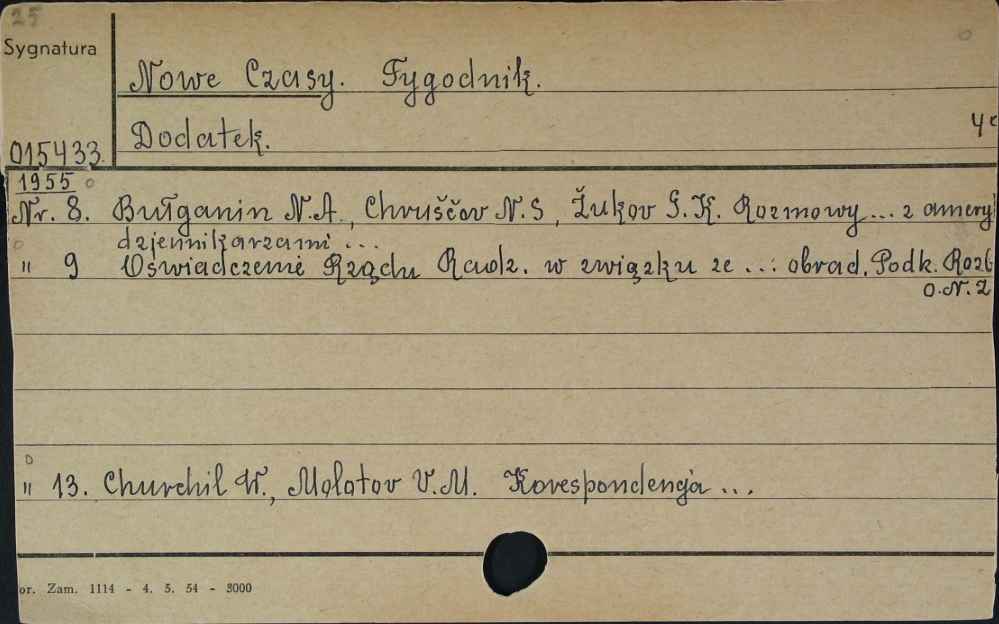 25
Sygnatura
Nowe Czasy. Tygodnik.
Dodatek. 4c
015433
1955
Nr. 8. Bułganin N.A., Chruščov N.S, Žukov G.K. Rozmowy ... z amery
dziennikarzami ...
" 9 Oświadczenie Rządu Radz. w związku ze ... obrad. Podk. Rozb
O.N.Z
" 13. Churchil W., Molotov V.M. Korespondencja ...
or. Zam. 1114 - 4. 5. 54 - 3000